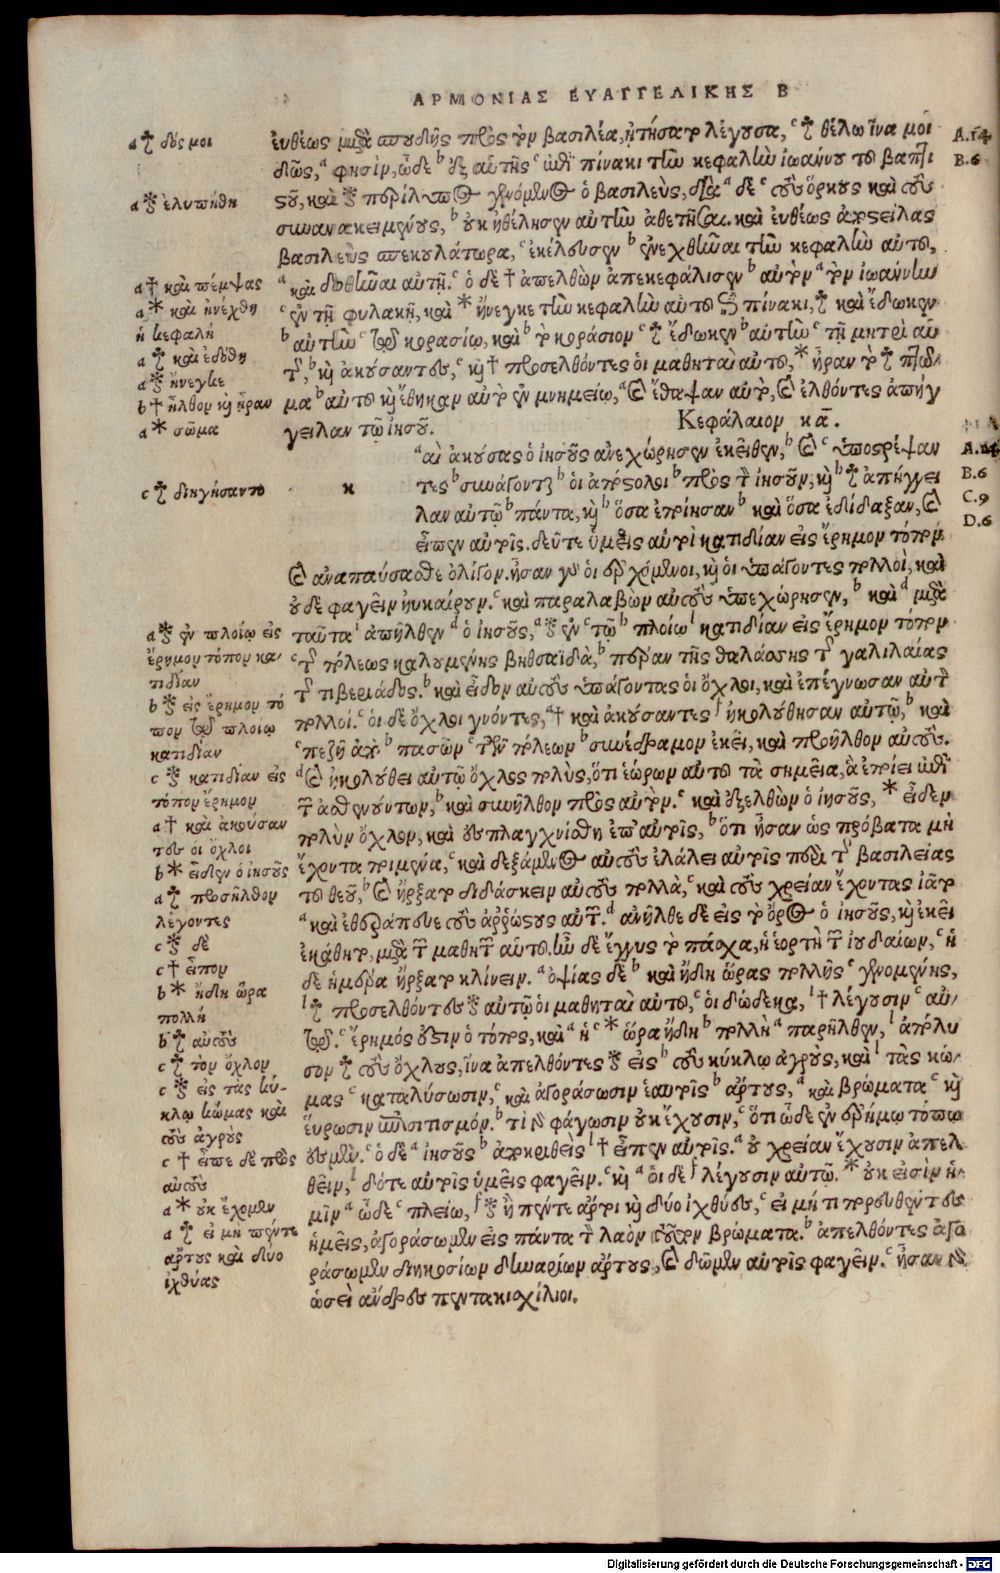 ΑΡΜΟΝΙΑΣ ΕΥΑΓΓΕΛΙΚΗΣ Β
ἐυθέως μετὰ σπουδῆς πρὸς τὸν βασιλέα, ᾐτήσατο λέγουσα, ᶜ ☨ θέλω ἵνα μοι
δῶς, ᵃ φησὶν, ὧδε ᵇ ἐξ αὐτῆς ᶜ ἐπὶ πίνακι τὴν κεφαλὴν ἰωάννου τοῦ βαπτι
στοῦ, καὶ ⁑ περίλυπος γενόμενος ὁ βασιλεὺς, διὰ ᵃ δὲ ᶜ τοὺς ὅρκους καὶ τοὺς
συνανακειμένους, ᵇ οὐκ ἠθέλησεν αὐτὴν ἀθετῆσαι. καὶ ἐυθέως ἀποστείλας
βασιλεὺς σπεκουλάτωρα, ᶜ ἐκέλευσεν ᵇ ἐνεχθῆναι τὴν κεφαλὴν αὐτοῦ,
ᵃ καὶ δοθῆναι αὐτῇ. ᶜ ὁ δὲ † ἀπελθὼν ἀπεκεφάλισεν ᵇ αὐτὸν ᵃ τὸν ἰωάννην
ᶜ ἐν τῇ φυλακῇ, καὶ * ἤνεγκε τὴν κεφαλὴν αὐτοῦ ἐπὶ πίνακι, ☨ καὶ ἔδωκεν
ᵇ αὐτὴν ᶜ τῷ κορασίῳ, καὶ ᵇ τὸ κοράσιον ᶜ ☨ ἔδωκεν ᵇ αὐτὴν ᶜ τῇ μητρὶ αὑ
τῆς, ᵇ καὶ ἀκούσαντες, ᶜ καὶ † προσελθόντες οἱ μαθηταὶ αὐτοῦ, * ἦραν τὸ ☨ πτῶ
μα ᵇ αὐτοῦ καὶ ἔθηκαν αὐτὸ ἐν μνημείῳ, ᵃ καὶ ἔθαψαν αὐτὸ, καὶ ἐλθόντες ἀπήγ
γειλαν τῷ ἰησοῦ.
Κεφάλαιον κᾱ.
ᵃ αὶ ἀκούσας ὁ ἰησοῦς ἀνεχώρησεν ἐκεῖθεν, ᵇ καὶ ᶜ ὑποστρέψαν
κ
τες ᵇ συνάγονται ᵇ οἱ ἀπόστολοι ᵇ πρὸς τὸν ἰησοῦν, καὶ ᵇ ☨ ἀπήγγει
λαν αὐτῷ ᵇ πάντα, καὶ ᵇ ὅσα ἐποίησαν ᵇ καὶ ὅσα ἐδίδαξαν, καὶ
εἶπεν αὐτοῖς. δεῦτε ὑμεῖς αὐτοὶ κατιδίαν εἰς ἔρημον τόπον
καὶ ἀναπαύσασθε ὀλίγον. ἦσαν γὰρ οἱ ἐρχόμενοι, καὶ οἱ ὑπάγοντες πολλοὶ, καὶ
οὐδὲ φαγεῖν ἠυκαίρουν. ᶜ καὶ παραλαβὼν αὐτοὺς ὑπεχώρησεν, ᵇ καὶ ᵈ μετὰ
ταῦτα ᶠ ἀπῆλθεν ᵈ ὁ ἰησοῦς, ᵃ ⁑ ἐν ᶜ τῷ ᵇ πλοίῳ ᶠ κατιδίαν εἰς ἔρημον τόπον
ᶜ τῆς πόλεως καλουμένης βηθσαϊδὰ, ᵇ πέραν τῆς θαλάσσης τῆς γαλιλαίας
τῆς τιβεριάδος. ᵇ καὶ εἶδον αὐτοὺς ὑπάγοντας οἱ ὄχλοι, καὶ ἐπέγνωσαν αὐτὸν
πολλοί. ᶜ οἱ δὲ ὄχλοι γνόντες, ᵃ † καὶ ἀκούσαντες ᶠ ἠκολούθησαν αὐτῷ, ᵇ καὶ
ᶜ πεζῇ ἀπὸ ᵇ πασῶν ᶜ τῶν πόλεων ᵇ συνέδραμον ἐκεῖ, καὶ προῆλθον αὐτούς.
ᵈ καὶ ἠκολούθει αὐτῷ ὄχλος πολὺς, ὅτι ἑώρων αὐτοῦ τὰ σημεῖα, ἃ ἐποίει ἐπὶ
τῶν ἀσθενούντων, ᵇ καὶ συνῆλθον πρὸς αὐτόν. ᶜ καὶ ἐξελθὼν ὁ ἰησοῦς, * εἶδεν
πολὺν ὄχλον, καὶ ἐσπλαγχνίσθη ἐπ' αὐτοῖς, ᵇ ὅτι ἦσαν ὡς πρόβατα μὴ
ἔχοντα ποιμένα, ᶜ καὶ δεξάμενος αὐτοὺς ἐλάλει αὐτοῖς περὶ τῆς βασιλείας
τοῦ θεοῦ, ᵇ καὶ ἤρξατο διδάσκειν αὐτοὺς πολλὰ, ᶜ καὶ τοὺς χρείαν ἔχοντας ἰᾶτο
ᵃ καὶ ἐθεράπευε τοὺς ἀρρώστους αὐτῶν. ᵈ ἀνῆλθε δὲ εἰς τὸ ὄρος ὁ ἰησοῦς, καὶ ἐκεῖ
ἐκάθητο, μετὰ τῶν μαθητῶν αὐτοῦ. ἦν δὲ ἔγγυς τὸ πάσχα, ἡ ἑορτὴ τῶν ἰουδαίων, ᶜ ἡ
δὲ ἡμέρα ἤρξατο κλίνειν. ᵃ ὀψίας δὲ ᵇ καὶ ἤδη ὥρας πολλῆς ᶜ γενομένης,
ᶠ ☨ προσελθόντες ⁑ αὐτῷ οἱ μαθηταὶ αὐτοῦ, ᶜ οἱ δώδεκα, ᶠ † λέγουσιν ᶜ αὐ-
τῷ. ᶜ ἔρημός ἐστιν ὁ τόπος, καὶ ᵃ ἡ ᶜ * ὥρα ἤδη ᵇ πολλὴ ᵃ παρῆλθεν, ᶠ ἀπόλυ
σον ☨ τοὺς ὄχλους, ἵνα ἀπελθόντες ⁑ εἰς ᵇ τοὺς κύκλῳ ἀγροὺς, καὶ ᶠ τὰς κώ-
μας ᶜ καταλύσωσιν, ᶜ καὶ ἀγοράσωσιν ἑαυτοῖς ᵇ ἄρτους, ᵃ καὶ βρώματα ᶜ καὶ
εὕρωσιν ἐπισιτισμόν. ᵇ τί γὰρ φάγωσιν οὐκ ἔχουσιν, ᶜ ὅτι ὧδε ἐν ἐρήμῳ τόπῳ
ἐσμέν. ᶜ ὁ δὲ ᵃ ἰησοῦς ᵇ ἀποκριθεὶς ᶠ † εἶπεν αὐτοῖς. ᵃ οὐ χρείαν ἔχουσιν ἀπελ
θεῖν, ᶠ δότε αὐτοῖς ὑμεῖς φαγεῖν. ᶜ καὶ ᵃ οἱ δὲ ᶠ λέγουσιν αὐτῷ. * οὐκ εἰσὶν ἡ-
μῖν ᵃ ὧδε ᶜ πλείω, ᶠ ⁑ ἢ πέντε ἄρτοι καὶ δύο ἰχθύες, ᶜ εἰ μή τι πορευθέντες
ἡμεῖς, ἀγοράσωμεν εἰς πάντα τὸν λαὸν τοῦτον βρώματα. ᵇ ἀπελθόντες ἀγο
ράσωμεν διηκοσίων δηναρίων ἄρτους, καὶ δῶμεν αὐτοῖς φαγεῖν. ᶜ ἦσαν γὰρ
ὡσεὶ ἄνδρες πεντακισχίλιοι.
a ☨ δός μοι
a ⁑ ἐλυπήθη
a † καὶ πέμψας
a * καὶ ἠνέχθη
ἡ κεφαλή
a ☨ καὶ ἐδόθη
a ⁑ ἤνεγκε
b † ἦλθον καὶ ἦραν
a * σῶμα
c ☨ διηγήσαντο
a ⁑ ἐν πλοίῳ εἰς
ἔρημον τόπον κα-
τιδίαν
b ⁑ εἰς ἔρημον τό
πον τῷ πλοίῳ
κατιδίαν
c ⁑ κατιδίαν εἰς
τόπον ἔρημον
a † καὶ ἀκούσαν
τες οἱ ὄχλοι
b * εἶδεν ὁ ἰησοῦς
a ☨ προσῆλθον
λέγοντες
c ⁑ δὲ
c † εἶπον
b * ἤδη ὥρα
πολλή
b ☨ αὐτοὺς
c ☨ τὸν ὄχλον
c ⁑ εἰς τὰς κύ-
κλῳ κώμας καὶ
τοὺς ἀγρούς
c † εἶπε δὲ πρὸς
αὐτούς
a * οὐκ ἔχομεν
a ☨ εἰ μὴ πέντε
ἄρτους καὶ δύο
ἰχθύας
A.14
B.6
A.14
B.6
C.9
D.6